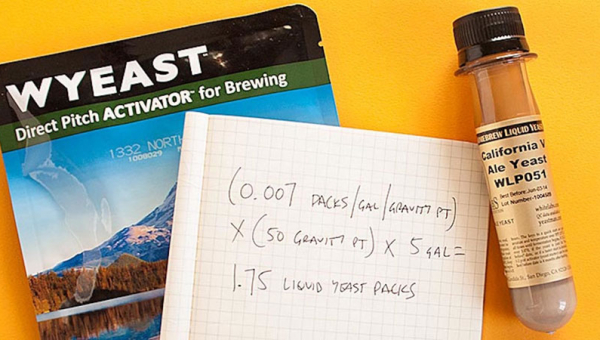 WYEAST™
Direct Pitch ACTIVATOR™ for Brewing
1332 NORTH
1008029
(0.007 PACKS/GAL/GRAVITY PT)
X (50 GRAVITY PT) X 5 GAL =
1.75 LIQUID YEAST PACKS
HOMEBREW LIQUID YEAST
California V
Ale Yeast
WLP051
Best Before: Jun-03-14
Lot Number-
YEAST
San Diego, CA